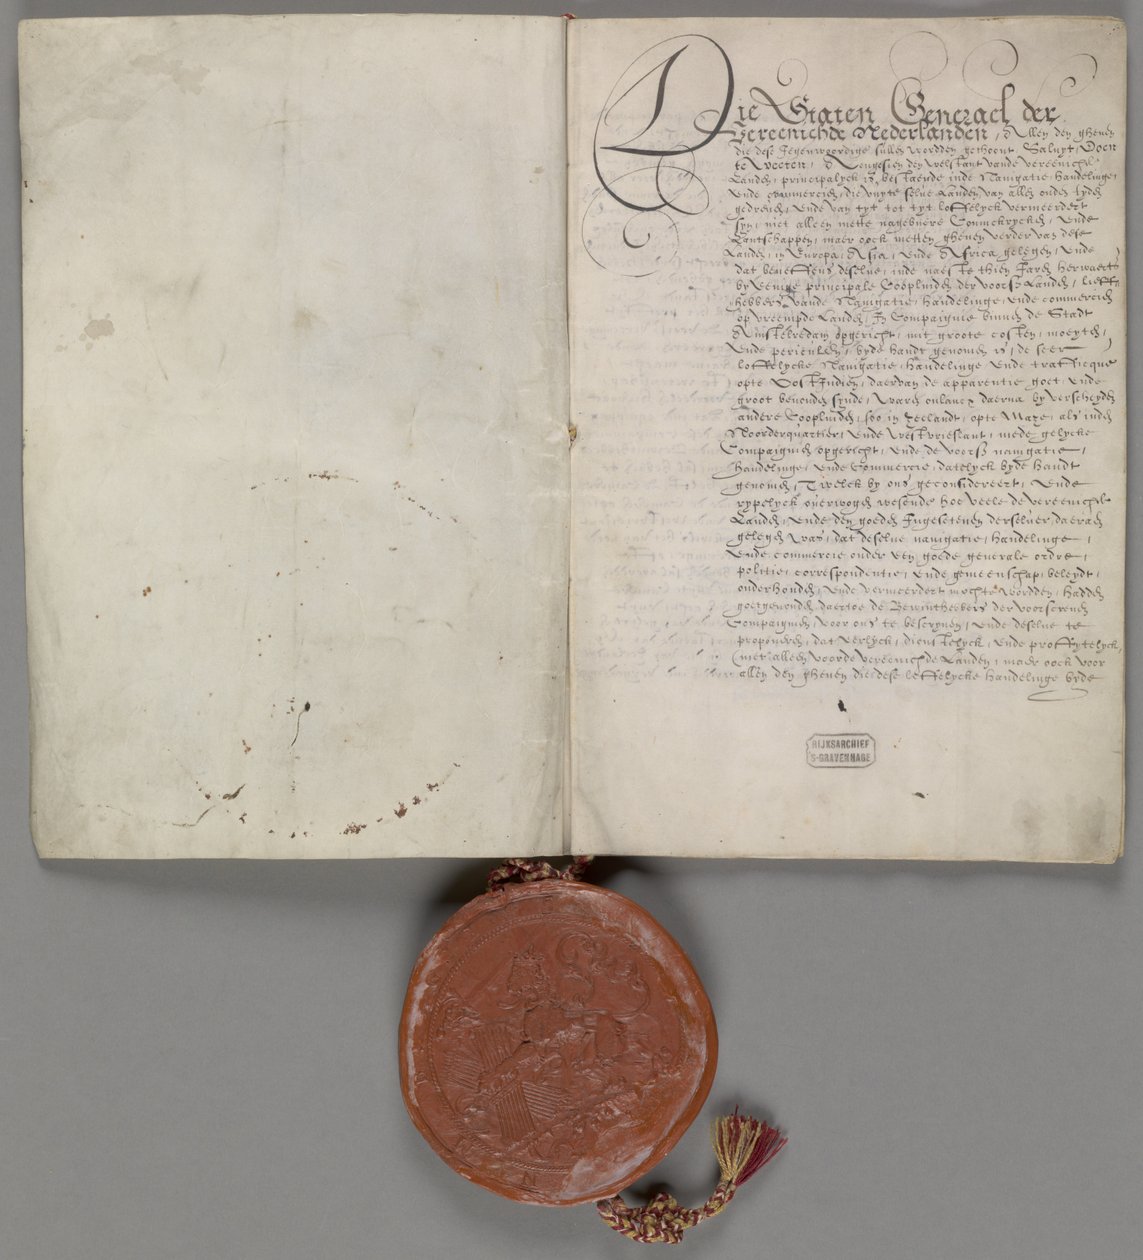 Die Staten Generael der
Vereenichde Nederlanden, Allen den ghenen
die dese Jegenwoordige sullen wordden gethoont Saluyt, Doen
te Weeten, Alsoe gesien den welstant vande vereenichde
Landen, principalyck is bestaende inde Navigatie, handelinge,
ende commercien, die vuyte selve Landen van allen ouden tyden
gedreven, ende van tyt tot tyt loffelyck vermeerdert
syn, niet alleen mette nagebuere Coninckrycken, ende
Lantschappen, maer oock metten ghenen verder van dese
Landen, in Europa, Asia, ende Africa gelegen, ende
dat beneffens deselve, inde naeste thien Jaren herwaerts
by eenige principale Coopluiden der voorsz Landen, lieff-
hebbers vande Navigatie, handelinge, ende commercien
op vreempde Landen, In Compaignie binnen de Stadt
Amstelredam opgericht, mit groote costen, moeyten,
ende periculen, byde handt genomen is, de seer
loffelycke Navigatie, handelinge, ende trafficque
opte Oost Indien, daervan de apparentie goet, ende
groot bevonden synde, waren onlancx daerna by verscheyden
andere Coopluiden, soo in Zeelandt, opte Maze, als inden
Noorderquartier, ende Westvrieslant, mede gelycke
Compaignien opgericht, ende de voorsz navigatie,
handelinge, ende Commercie, datelyck byde handt
genomen, Twelck by ons geconsidereert, ende
rypelyck overwogen wesende hoe veele de vereenichde
Landen, ende den goeden Ingesetenen derselver, daeraen
gelegen was, dat deselve navigatie, handelinge,
ende commercie onder een goede generale ordre,
politie, correspondentie, ende gemeenschap, beleydt,
onderhouden, ende vermeerdert mochte wordden, hadden
goetgevonden, daertoe de Bewinthebbers der voorscreven
Compaignien, voor ons te bescryven, ende deselve te
proponeren, dat eerlyck, dienstelyck, ende proffytelyck,
(niet alleen voorde vereenichde Landen, maer oock voor
allen den ghenen die dese loffelycke handelinge byde
RIJKSARCHIEF
'S-GRAVENHAGE